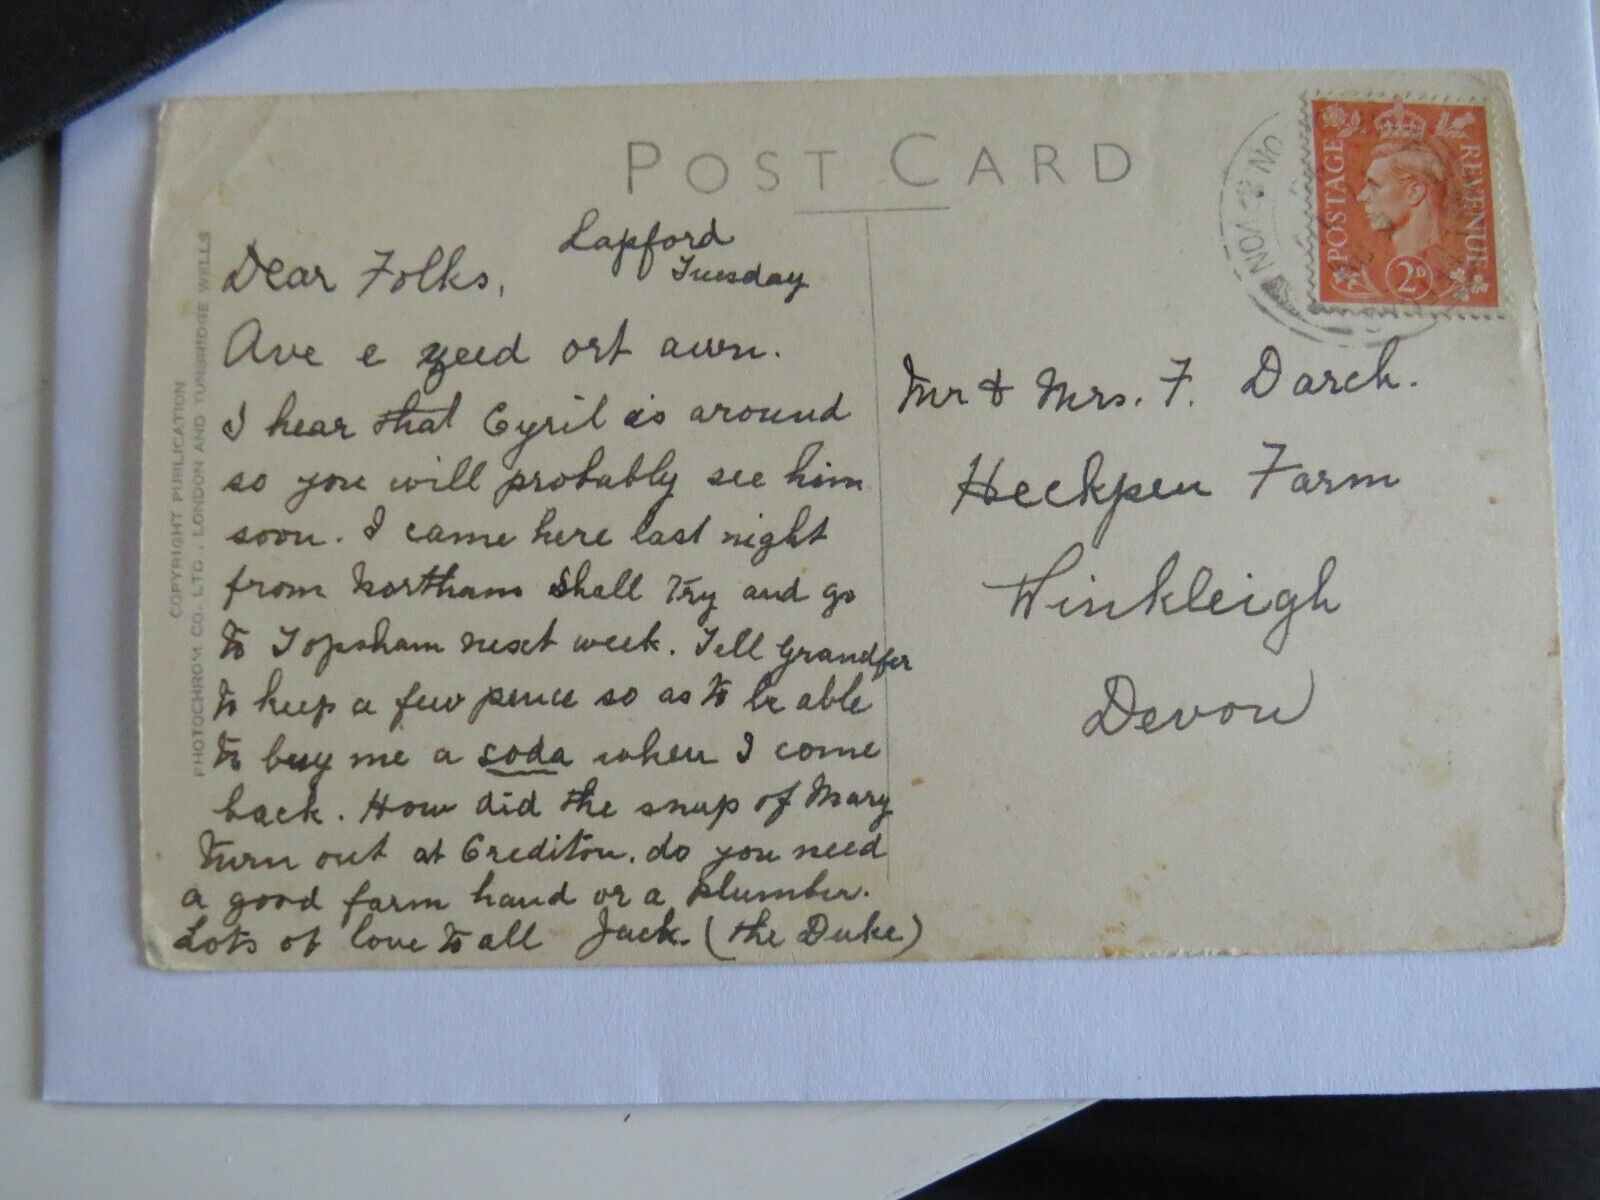 POST CARD
Lapford
Tuesday
Dear Folks,
Ave e yeed ort awn.
I hear that Cyril is around
so you will probably see him
soon. I came here last night
from Northam Shall Try and go
to Topsham next week. Tell Grandfer
to keep a few pence so as to be able
to buy me a soda when I come
back. How did the snap of Mary
turn out at Crediton. do you need
a good farm hand or a plumber.
Lots of love to all Jack. (the Duke)
Mr & Mrs. F. Darch.
Heckpen Farm
Winkleigh
Devon
POSTAGE REVENUE
2D
COPYRIGHT PUBLICATION
PHOTOCHROM CO. LTD., LONDON AND TUNBRIDGE WELLS